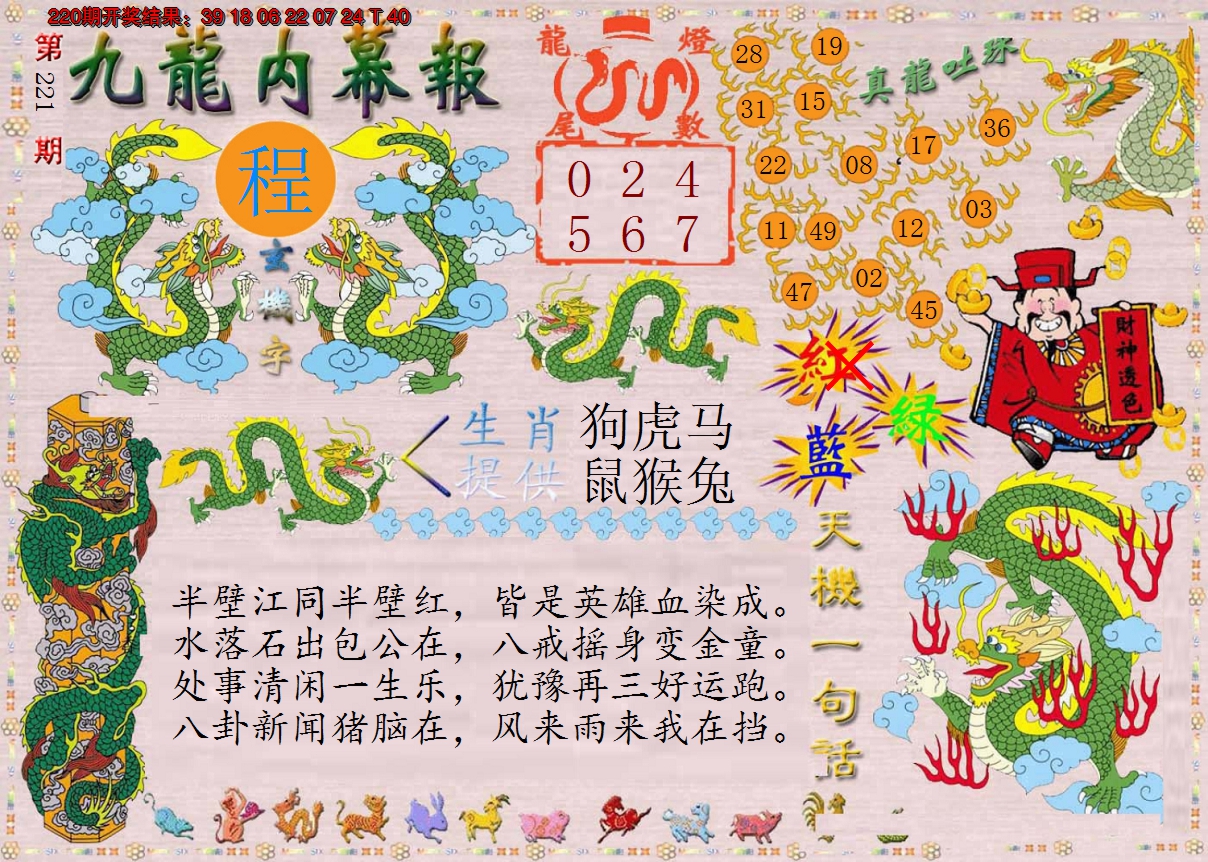 220期开奖结果：39 18 06 22 07 24 T 40
第221期
九龍内幕報
程
玄機字
龍燈
尾數
0 2 4
5 6 7
真龍吐珠
28 19
31 15
22 08 17 36
11 49 12 03
47 02 45
紅
綠
藍
財神透色
生肖
提供
狗虎马
鼠猴兔
天機一句话
半壁江同半壁红，皆是英雄血染成。
水落石出包公在，八戒摇身变金童。
处事清闲一生乐，犹豫再三好运跑。
八卦新闻猪脑在，风来雨来我在挡。